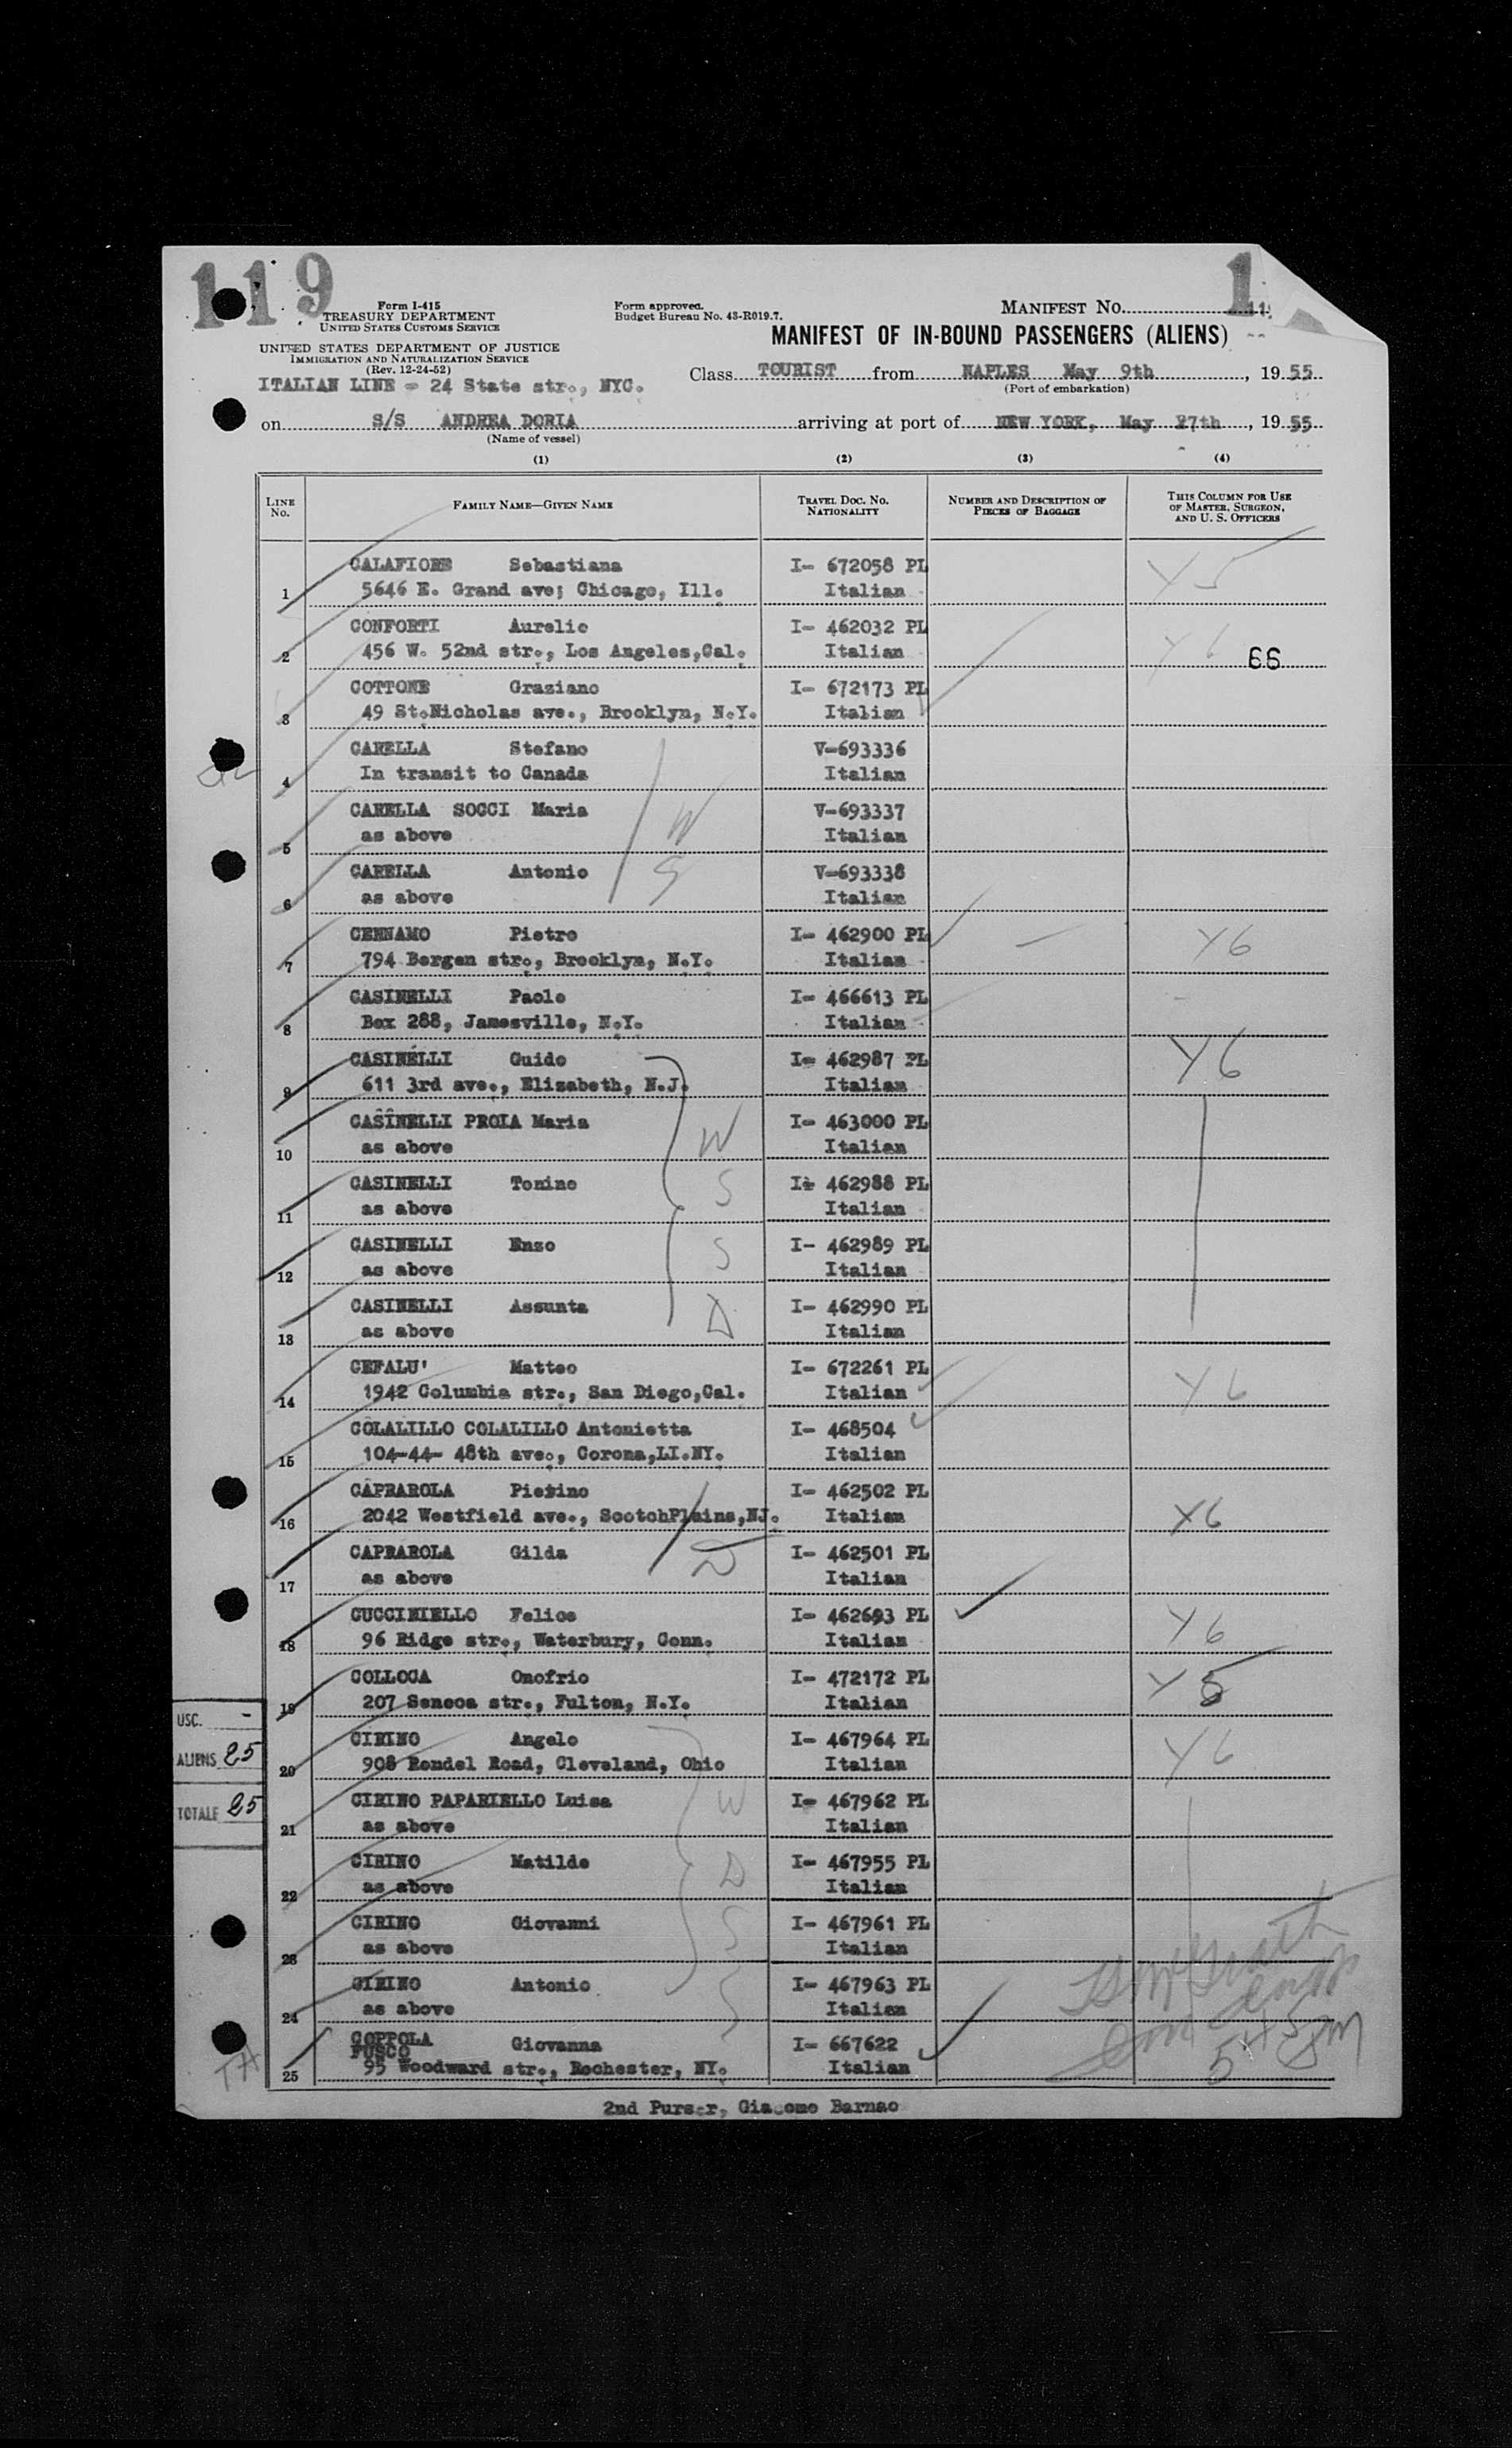 119
1
Form I-415
TREASURY DEPARTMENT
UNITED STATES CUSTOMS SERVICE
Form approved.
Budget Bureau No. 43-R019.7.
MANIFEST No.
UNITED STATES DEPARTMENT OF JUSTICE
IMMIGRATION AND NATURALIZATION SERVICE
(Rev. 12-24-52)
MANIFEST OF IN-BOUND PASSENGERS (ALIENS)
ITALIAN LINE - 24 State str., NYC.
Class TOURIST from NAPLES May 9th, 1955
(Port of embarkation)
on S/S ANDREA DORIA arriving at port of NEW YORK, May 27th, 1955
(Name of vessel)
(1) (2) (3) (4)
LINE No. FAMILY NAME—GIVEN NAME TRAVEL DOC. No. NATIONALITY NUMBER AND DESCRIPTION OF PIECES OF BAGGAGE THIS COLUMN FOR USE OF MASTER, SURGEON, AND U. S. OFFICERS
CALAFIORE Sebastiana I- 672058 PL Y5
1 5646 E. Grand ave; Chicago, Ill. Italian
CONFORTI Aurelio I- 462032 PL Y6
2 456 W. 52nd str., Los Angeles,Cal. Italian 66
COTTONE Graziano I- 672173 PL
3 49 St.Nicholas ave., Brooklyn, N.Y. Italian
CARELLA Stefano V-693336
4 In transit to Canada Italian
CARELLA SOCCI Maria W V-693337
5 as above Italian
CARELLA Antonio S V-693338
6 as above Italian
CENNAMO Pietro I- 462900 PL Y6
7 794 Bergen str., Brooklyn, N.Y. Italian
CASINELLI Paolo I- 466613 PL
8 Box 288, Jamesville, N.Y. Italian
CASINELLI Guido I- 462987 PL Y6
9 611 3rd ave., Elizabeth, N.J. Italian
CASINELLI PROIA Maria W I- 463000 PL
10 as above Italian
CASINELLI Tonino S I- 462988 PL
11 as above Italian
CASINELLI Enzo S I- 462989 PL
12 as above Italian
CASINELLI Assunta D I- 462990 PL
13 as above Italian
CEFALU' Matteo I- 672261 PL Y6
14 1942 Columbia str., San Diego,Cal. Italian
COLALILLO COLALILLO Antonietta I- 468504
15 104-44- 48th ave., Corona,LI.NY. Italian
CAPRAROLA Pierino I- 462502 PL Y6
16 2042 Westfield ave., ScotchPlains,NJ. Italian
CAPRAROLA Gilda D I- 462501 PL
17 as above Italian
CUCCINIELLO Felice I- 462693 PL Y6
18 96 Ridge str., Waterbury, Conn. Italian
COLLOCA Onofrio I- 472172 PL Y5
19 207 Seneca str., Fulton, N.Y. Italian
CIRINO Angelo I- 467964 PL Y6
20 908 Rondel Road, Cleveland, Ohio Italian
CIRINO PAPARIELLO Luisa W I- 467962 PL
21 as above Italian
CIRINO Matilde D I- 467955 PL
22 as above Italian
CIRINO Giovanni S I- 467961 PL
23 as above Italian
CIRINO Antonio S I- 467963 PL
24 as above Italian
COPPOLA
FUSCO Giovanna I- 667622
25 95 Woodward str., Rochester, NY. Italian
USC. -
ALIENS 25
TOTALE 25
2nd Purser, Giacomo Barnao